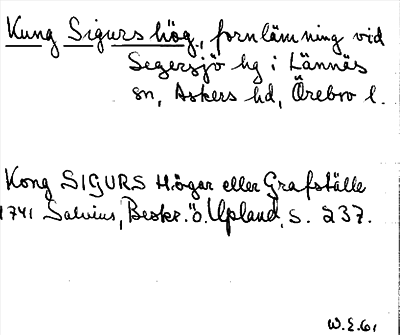 Kung Sigurs hög, fornlämning vid
Segersjö hg i Lännäs
sn, Askers hd, Örebro l.
Kong SIGURS Högar eller Grafställe
1741 Salvius, Beskr. ö. Upland, s. 237.
W.E.61